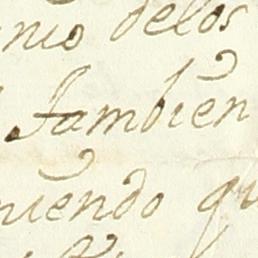 nio delos
Tambien
niendo qu